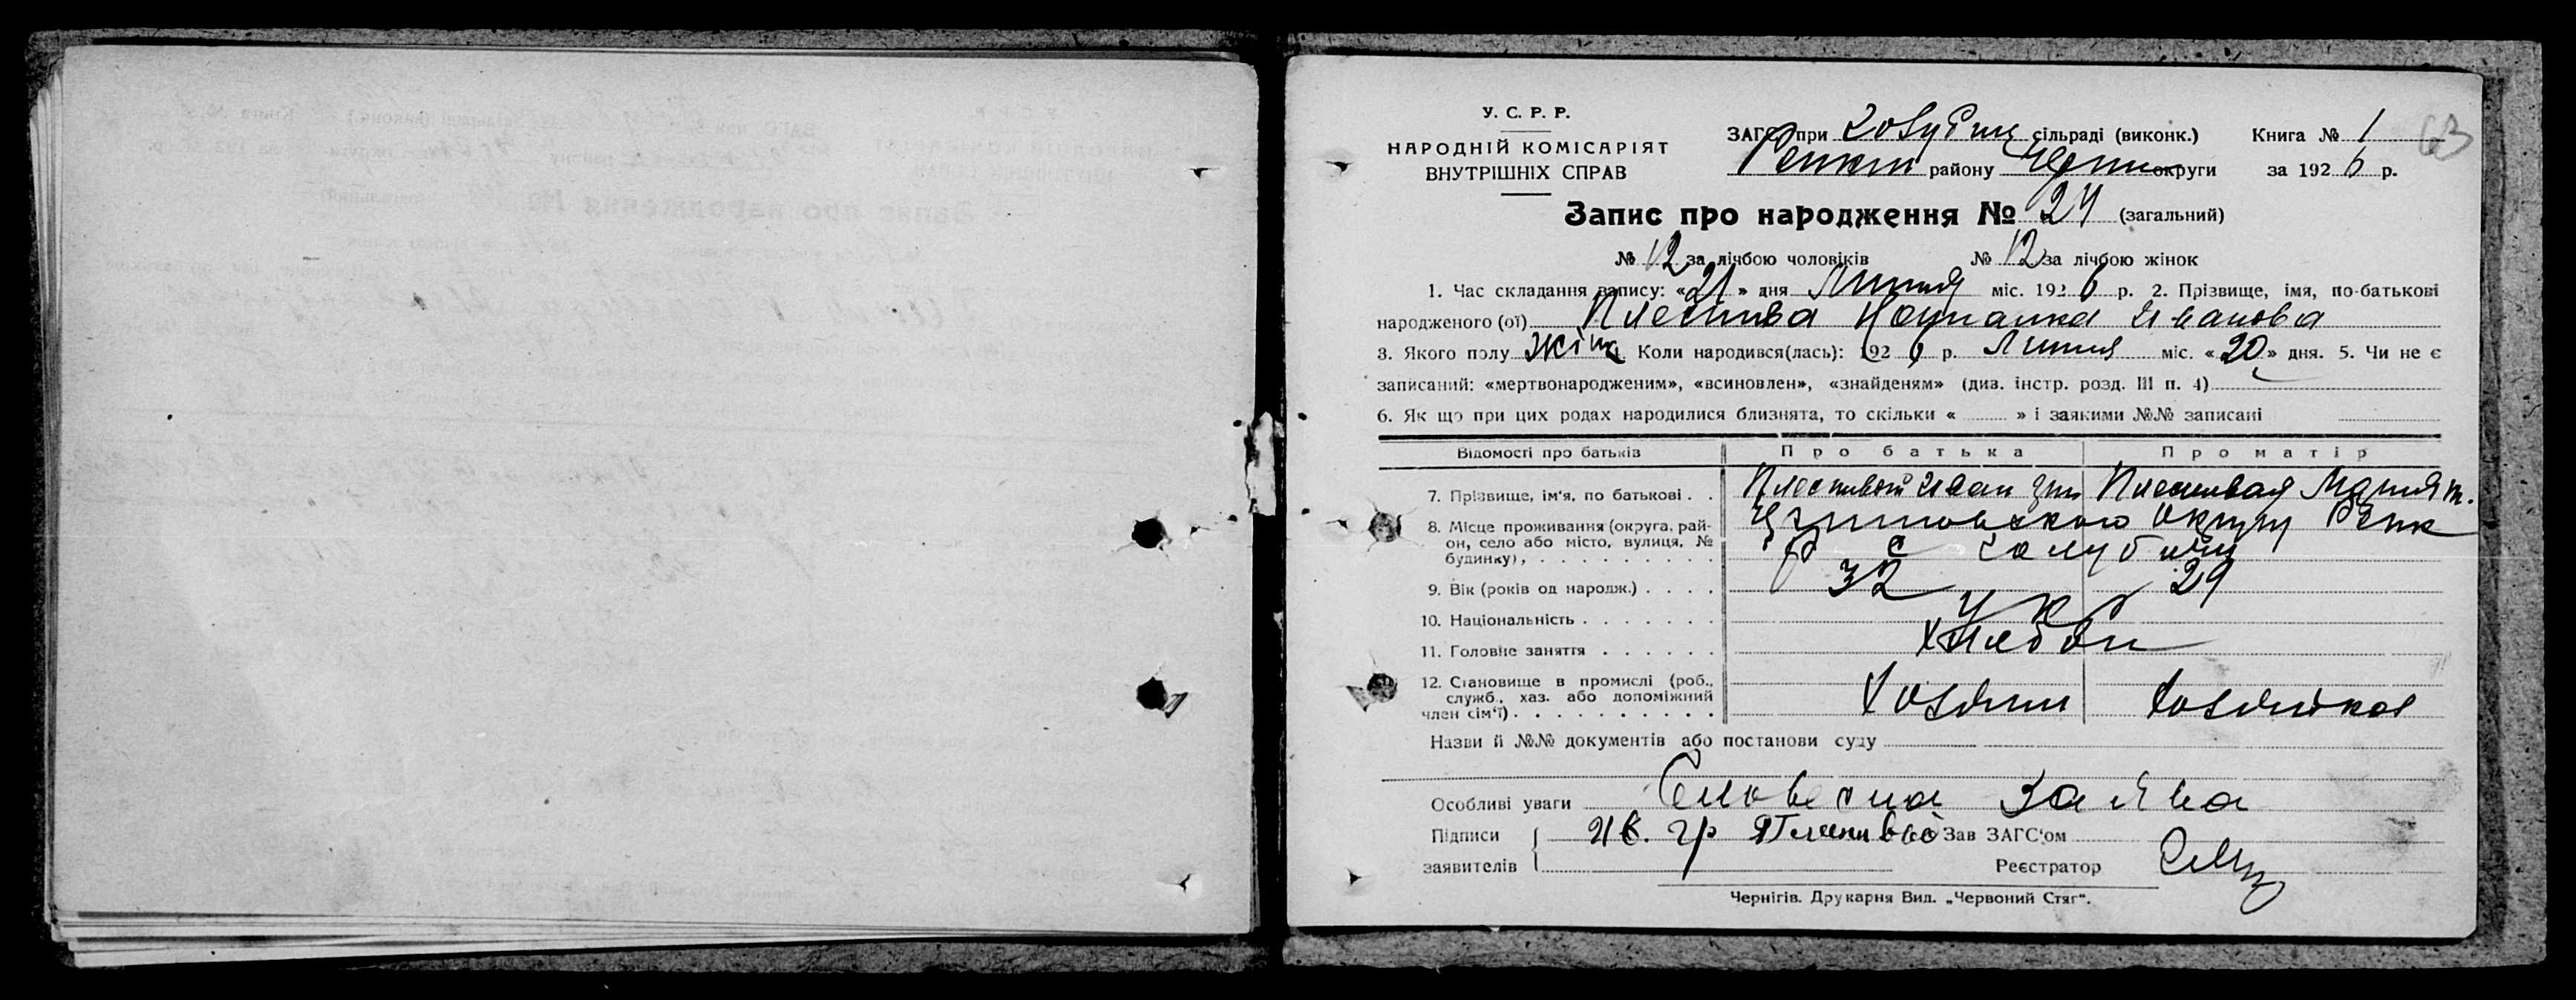 У. С. Р. Р.
НАРОДНІЙ КОМІСАРІЯТ
ВНУТРІШНІХ СПРАВ
63
ЗАГС при Голубиц сільраді (виконк.) Книга № 1
Репкин району Черни округи за 1926 р.
Запис про народження № 24 (загальний)
№ 12 за лічбою чоловіків № 12 за лічбою жінок
1. Час складання запису: «21» дня Липня міс. 1926 р. 2. Прізвище, імя, по-батькові
народженого (ої) Иванова
3. Якого полу жіно Коли народився(лась): 1926 р. Липня міс. «20» дня. 5. Чи не є
записаний: «мертвонародженим», «всиновлен», «знайденям» (див. інстр. розд. III п. 4)
6. Як що при цих родах народилися близнята, то скільки « » і заякими №№ записані
Відомості про батьків Про батька Про матір
7. Прізвище, ім'я, по батькові . . Иван Мария
8. Місце проживання (округа, рай-
он, село або місто, вулиця, №
будинку), . . . . . . . . . округи Репк
с Голубичи
9. Вік (років од народж.) . . . . 32 29
10. Національність . . . . . . . Укр
11. Головне заняття . . . . . . Хлебоп
12. Становище в промислі (роб.,
служб., хаз. або допоміжний
член сім'ї) . . . . . . . . . . Хозяин Хозяйка
Назви й №№ документів або постанови суду
Особливі уваги Словесна заява
Підписи Ив. гр Зав ЗАГС'ом
заявителів Реєстратор
Чернігів. Друкарня Вид. „Червоний Стяг".